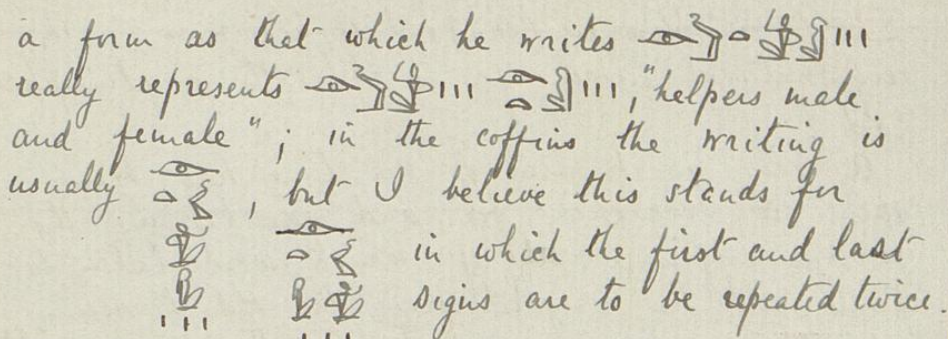 a form as that which he writes
really represents , "helpers male
and female"; in the coffins the writing is
usually , but I believe this stands for
in which the first and last
signs are to be repeated twice.